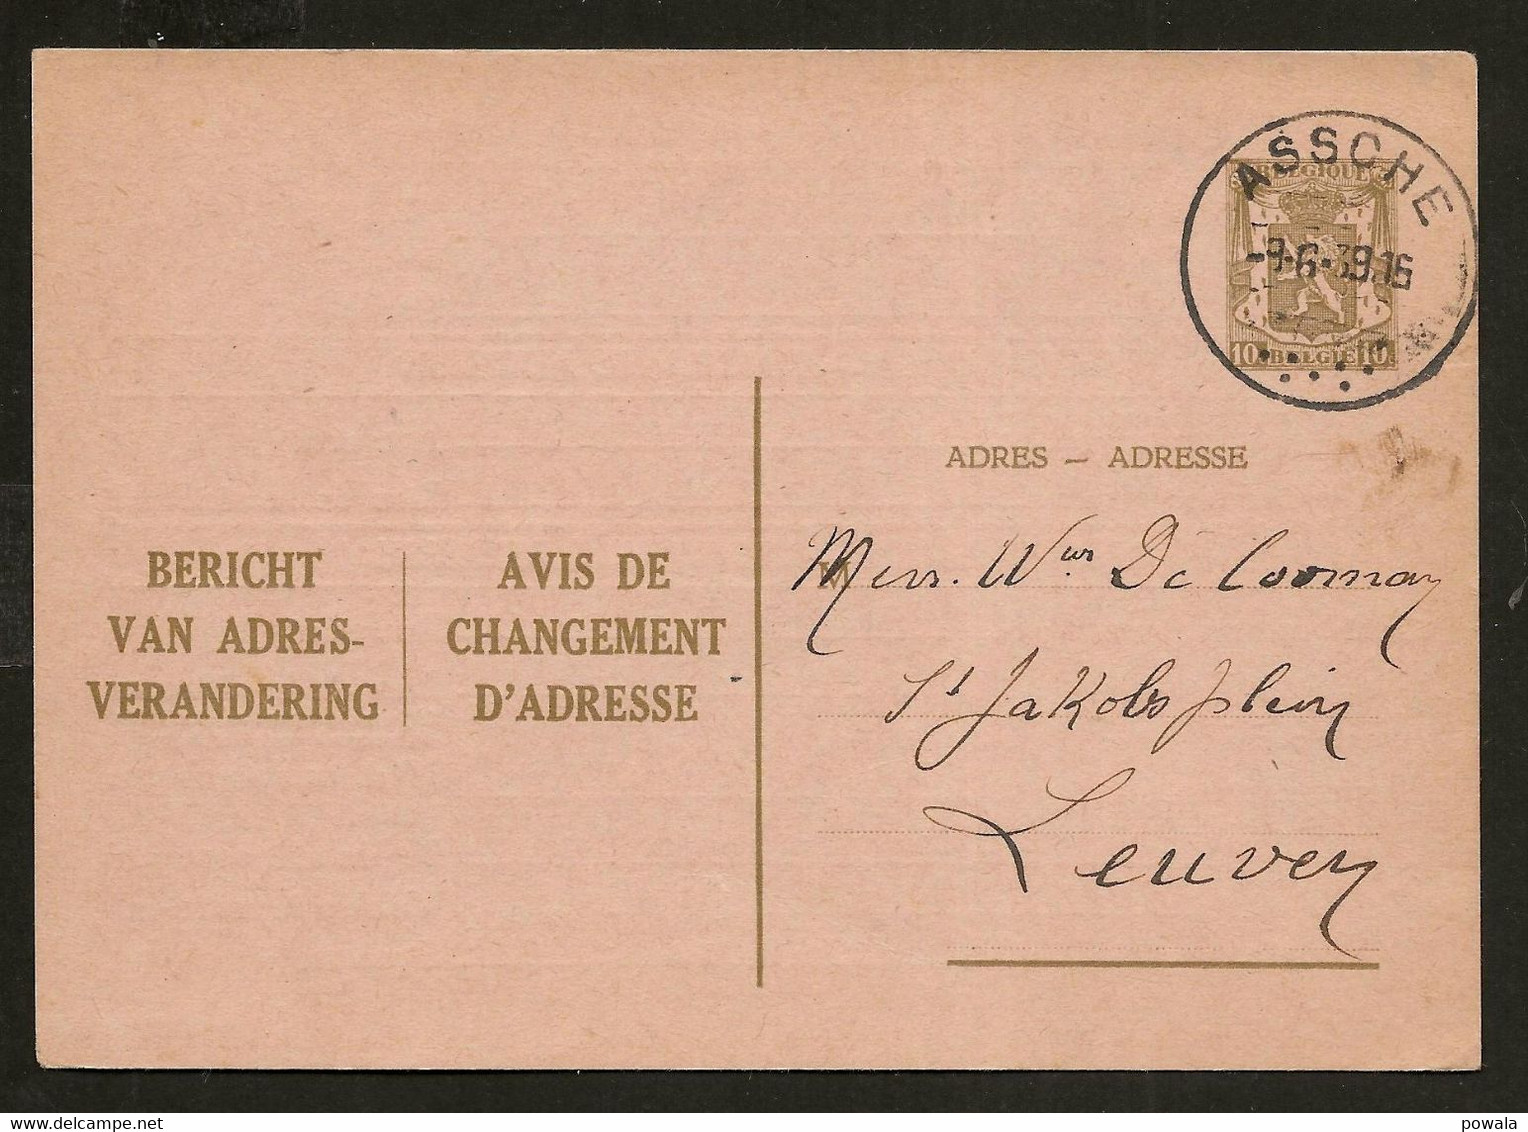 ASSCHE
BELGIQUE
-9.-6-39.16
10. BELGIE 10.
ADRES – ADRESSE
BERICHT
VAN ADRES-
VERANDERING
AVIS DE
CHANGEMENT
D'ADRESSE
M
Mevr. Wwe De Cooman
St Jakobsplein
Leuven
powala